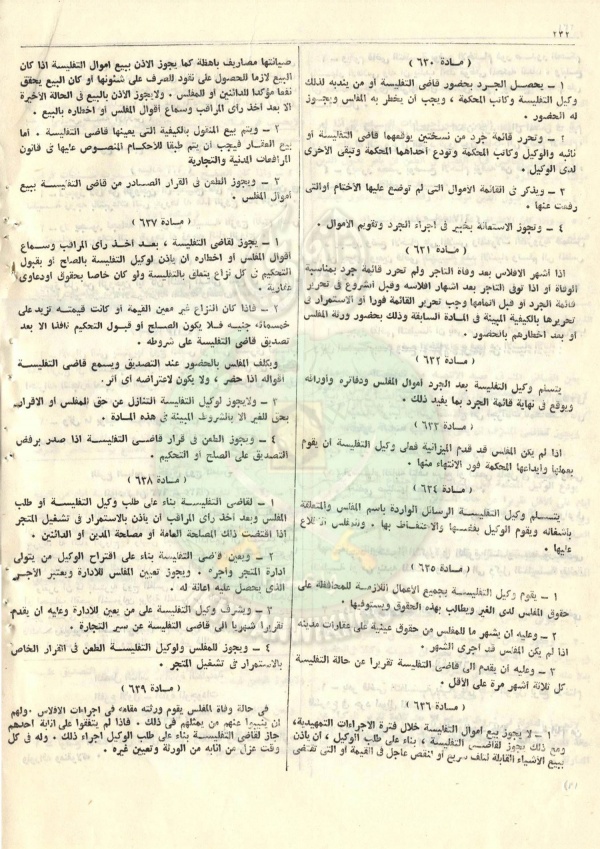 ٢٣٢
( مـادة ٦٣٠ )
١ – يحصل الجرد بحضور قاضى التفليسة أو من يندبه لذلك
وكيل التفليسة وكاتب المحكمة ، ويجب أن يخطر به المفلس ويجوز
له الحضور .
٢ – وتحرر قائمة جرد من نسختين يوقعهما قاضى التفليسة أو
نائبه والوكيل وكاتب المحكمة وتودع احداهما المحكمة وتبقى الأخرى
لدى الوكيل .
٣ – ويذكر فى القائمة الأموال التى لم توضع عليها الأختام أوالتى
رفعت عنها .
٤ – وتجوز الاستعانة بخبير فى اجراء الجرد وتقويم الأموال .
( مـادة ٦٣١ )
اذا أشهر الافلاس بعد وفاة التاجر ولم تحرر قائمة جرد بمناسبة
الوفاة أو اذا توفى التاجر بعد اشهار افلاسه وقبل الشروع فى تحرير
قائمة الجرد أو قبل اتمامها وجب تحرير القائمة فورا أو الاستمرار فى
تحريرها بالكيفية المبينة فى المادة السابقة وذلك بحضور ورثة المفلس
أو بعد اخطارهم بالحضور .
( مـادة ٦٣٢ )
يتسلم وكيل التفليسة بعد الجرد أموال المفلس ودفاتره وأوراقه
ويوقع فى نهاية قائمة الجرد بما يفيد ذلك .
( مـادة ٦٣٣ )
اذا لم يكن المفلس قد قدم الميزانية فعلى وكيل التفليسة أن يقوم
بعملها وايداعها المحكمة فور الانتهاء منها .
( مـادة ٦٣٤ )
يتسلم وكيل التفليسة الرسائل الواردة باسم المفلس والمتعلقة
بأشغاله ويقوم الوكيل بفضها والاحتفاظ بها . وللمفلس الاطلاع
عليها .
( مـادة ٦٣٥ )
١ – يقوم وكيل التفليسة بجميع الأعمال اللازمة للمحافظة على
حقوق المفلس لدى الغير ويطالب بهذه الحقوق ويستوفيها .
٢ – وعليه ان يشهر ما للمفلس من حقوق عينية على عقارات مدينه
اذا لم يكن المفلس قد أجرى الشهر .
٣ – وعليه أن يقدم الى قاضى التفليسة تقريرا عن حالة التفليسة
كل ثلاثة أشهر مرة على الأقل .
( مـادة ٦٣٦ )
١ – لا يجوز بيع أموال التفليسة خلال فترة الاجراءات التمهيدية،
ومع ذلك يجوز لقاضى التفليسة ، بناء على طلب الوكيل ، ان يأذن
ببيع الأشياء القابلة لتلف سريع أو لنقص عاجل فى القيمة أو التى تقتضى
صيانتها مصاريف باهظة كما يجوز الاذن ببيع أموال التفليسة اذا كان
البيع لازما للحصول على نقود للصرف على شئونها أو كان البيع يحقق
نفعا مؤكدا للدائنين أو للمفلس . ولايجوز الاذن بالبيع فى الحالة الأخيرة
الا بعد أخذ رأى المراقب وسماع أقوال المفلس أو اخطاره بالبيع .
٢ – ويتم بيع المنقول بالكيفية التى يعينها قاضى التفليسة . أما
بيع العقار فيجب أن يتم طبقا للأحكام المنصوص عليها فى قانون
المرافعات المدنية والتجارية
٣ – ويجوز الطعن فى القرار الصادر من قاضى التفليسة ببيع
أموال المفلس .
( مـادة ٦٣٧ )
١ – يجوز لقاضى التفليسة ، بعد أخذ رأى المراقب وسماع
أقوال المفلس أو اخطاره أن يأذن لوكيل التفليسة بالصلح أو بقبول
التحكيم فى كل نزاع يتعلق بالتفليسة ولو كان خاصا بحقوق أودعاوى
عقارية .
٢ – فاذا كان النزاع غير معين القيمة أو كانت قيمته تزيد على
خمسمائة جنيه فلا يكون الصلح أو قبول التحكيم نافذا الا بعد
تصديق قاضى التفليسة على شروطه .
ويكلف المفلس بالحضور عند التصديق ويسمع قاضى التفليسة
أقواله اذا حضر ، ولا يكون لاعتراضه أى أثر .
٣ – ولايجوز لوكيل التفليسة التنازل عن حق للمفلس أو الاقرار
بحق للغير الا بالشروط المبينة فى هذه المادة .
٤ – ويجوز الطعن فى قرار قاضى التفليسة اذا صدر برفض
التصديق على الصلح أو التحكيم .
( مـادة ٦٣٨ )
١ – لقاضى التفليسة بناء على طلب وكيل التفليسة أو طلب
المفلس وبعد أخذ رأى المراقب أن يأذن بالاستمرار فى تشغيل المتجر
اذا اقتضت ذلك المصلحة العامة أو مصلحة المدين أو الدائنين .
٢ – ويعين قاضى التفليسة بناء على اقتراح الوكيل من يتولى
ادارة المتجر وأجره . ويجوز تعيين المفلس للادارة ويعتبر الأجر
الذى يحصل عليه اعانة له .
٣ – ويشرف وكيل التفليسة على من يعين للادارة وعليه أن يقدم
تقريرا شهريا الى قاضى التفليسة عن سير التجارة .
٤ – ويجوز للمفلس ولوكيل التفليسة الطعن فى القرار الخاص
بالاستمرار فى تشغيل المتجر .
( مـادة ٦٣٩ )
فى حالة وفاة المفلس يقوم ورثته مقامه فى اجراءات الافلاس .ولهم
ان ينيبوا عنهم من يمثلهم فى ذلك . فاذا لم يتفقوا على انابة أحدهم
جاز لقاضى التفليسة بناء على طلب الوكيل اجراء ذلك . وله فى كل
وقت عزل من أنابه من الورثة وتعيين غيره .